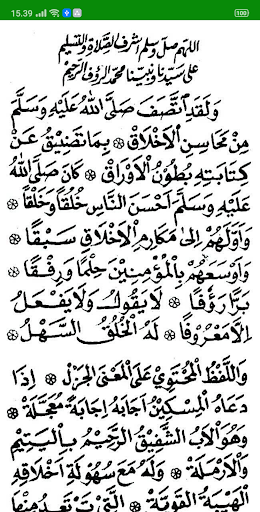 15.39
100
اللهم صل وسلم اشرف الصلاة والتسليم
على سيدنا ونبينا محمد الرؤف الرحيم
وَلَقَدِ اتَّصَفَ صَلَّى اللهُ عَلَيْهِ وَسَلَّمَ
مِنْ مَحَاسِنِ الْاَخْلَاقِ ۞ بِمَا تَضِيْقُ عَنْ
كِتَابَتِهِ بُطُوْنُ الْاَوْرَاقِ ۞ كَانَ صَلَّى اللهُ
عَلَيْهِ وَسَلَّمَ اَحْسَنَ النَّاسِ خُلُقًا وَخَلْقًا ۞
وَاَوَّلَهُمْ اِلىٰ مَكَارِمِ الْاَخْلَاقِ سَبْقًا ۞
وَاَوْسَعَهُمْ بِالْمُؤْمِنِيْنَ حِلْمًا وَرِفْقًا ۞
بَرًّا رَؤُفًا ۞ لَا يَقُوْلُ وَلَا يَفْعَلُ
اِلَّا مَعْرُوْفًا ۞ لَهُ الْخُلُقُ السَّهْلُ ۞
وَاللَّفْظُ الْمُحْتَوِيْ عَلَى الْمَعْنَى الْجَزْلِ ۞ اِذَا
دَعَاهُ الْمِسْكِيْنُ اَجَابَهُ اِجَابَةً مُعَجَّلَةً ۞
وَهُوَ الْاَبُ الشَّفِيْقُ الرَّحِيْمُ بِالْيَتِيْمِ
وَالْاَرْمَلَةِ ۞ وَلَهُ مَعَ سُهُوْلَةِ اَخْلَاقِهِ
الْهَيْبَةُ الْقَوِيَّةُ ۞ الَّتِيْ تَرْتَعِدُ مِنْهَا